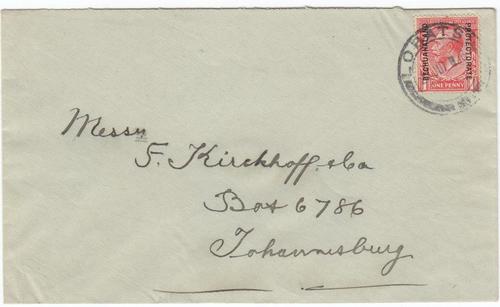 LOBATSI
BECHUANALAND
PROTECTORATE
ONE PENNY
Messrs
F. Kirchhoff & Co
Box 6786
Johannesburg